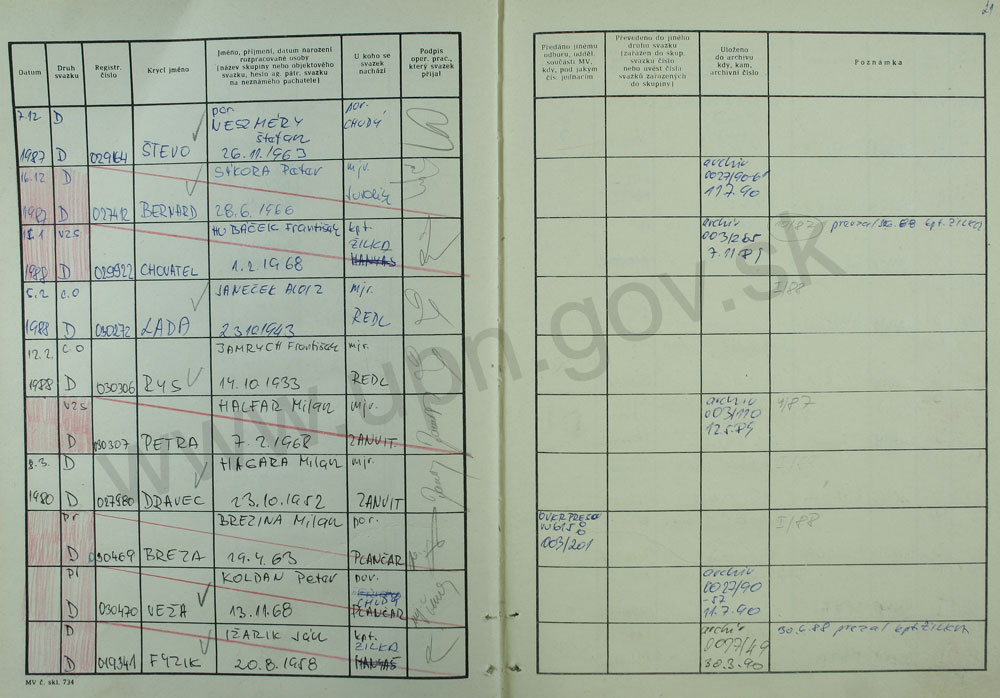 21
Datum
Druh svazku
Registr. číslo
Krycí jméno
Jméno, příjmení, datum narození
rozpracované osoby
(název skupiny nebo objektového
svazku, heslo ag. pátr. svazku
na neznámého pachatele)
U koho se
svazek
nachází
Podpis
oper. prac.,
který svazek
přijal
Předáno jinému
odboru, odděl.
součásti MV,
kdy, pod jakým
čís. jednacím
Převedeno do jiného
druhu svazku
(zařazen do skup.
svazku číslo
nebo uvést čísla
svazků zařazených
do skupiny)
Uloženo
do archivu
kdy, kam,
archivní číslo
Poznámka
7.12 D por. por.
VESZMÉRY CHUDÝ
Štefan
1987 D 029164 ŠTEVO 26.11.1963
16.12 D SÍKORA Peter mjr.
1987 D 027412 BERNARD 28.6.1966
archiv
0027/90-61
11.7.90
18.1 VZS HUBÁČEK František kpt.
ŽILKA
1988 D 029922 CHOVATEL 1.2.1968 HANYAS
archiv
003/265
7.11.89
kpt. ŽILKA
5.2 C.O JANEČEK ALOIZ mjr.
1988 D 030272 LADA 23.10.1943 REDL
I/88
12.2. C.O JAMRYCH František mjr.
1988 D 030306 RYS 14.10.1933 REDL
VZS HALFAR Milan mjr.
D 030307 PETRA 7.2.1968 ZANVIT.
archiv
003/110
12.5.89
8.3. D HAGARA Milan mjr.
1980 D 027980 DRAVEC 23.10.1952 ZANVIT
Pr BREZINA Milan por.
D 030469 BREZA 19.4.63 PLANČAR
003/201
I/88
Pr KOLDAN Peter por.
CHUDÝ
D 030470 VEŽA 13.11.68 PLANČAR
archiv
0027/90
-57
11.7.90
D IŽARIK Ján kpt.
ŽILKA
D 019341 FYZIK 20.8.1958 HANYAS
archiv
0017/49
30.3.90
30.6.88 kpt. ŽILKA
MV č. skl. 734
www.upn.gov.sk